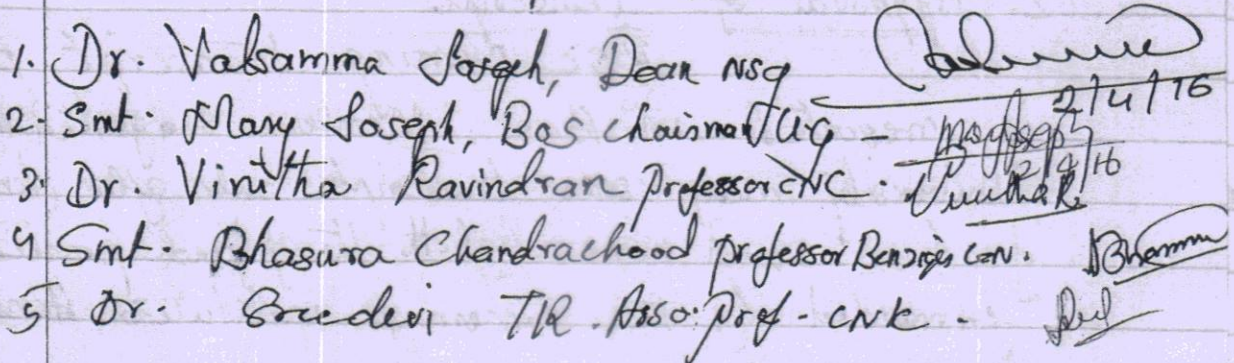 1. Dr. Valsamma Joseph, Dean NSg
2/4/16
2. Smt. Mary Joseph, BoS Chairman UG Mary Joseph
2/4/16
3. Dr. Vinitha Ravindran Professor CNC. Vinitha R.
4 Smt. Bhasura Chandrachood professor Benzigers CoN.
5 Dr. Sreedevi TR. Asso: Prof - CNK.